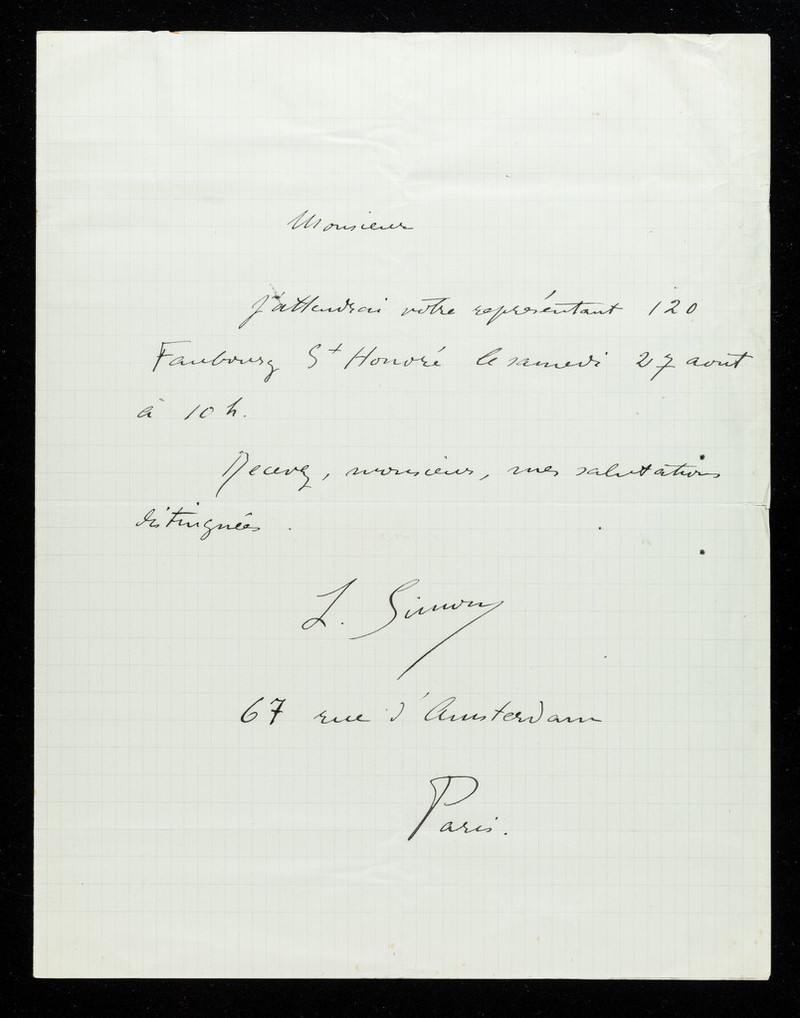 Monsieur
j'attendrai votre représentant 120
Faubourg St Honoré le samedi 27 aout
à 10 h.
Recevez, monsieur, mes salutations
distinguées.
L. Simon
67 rue d'Amsterdam
Paris.